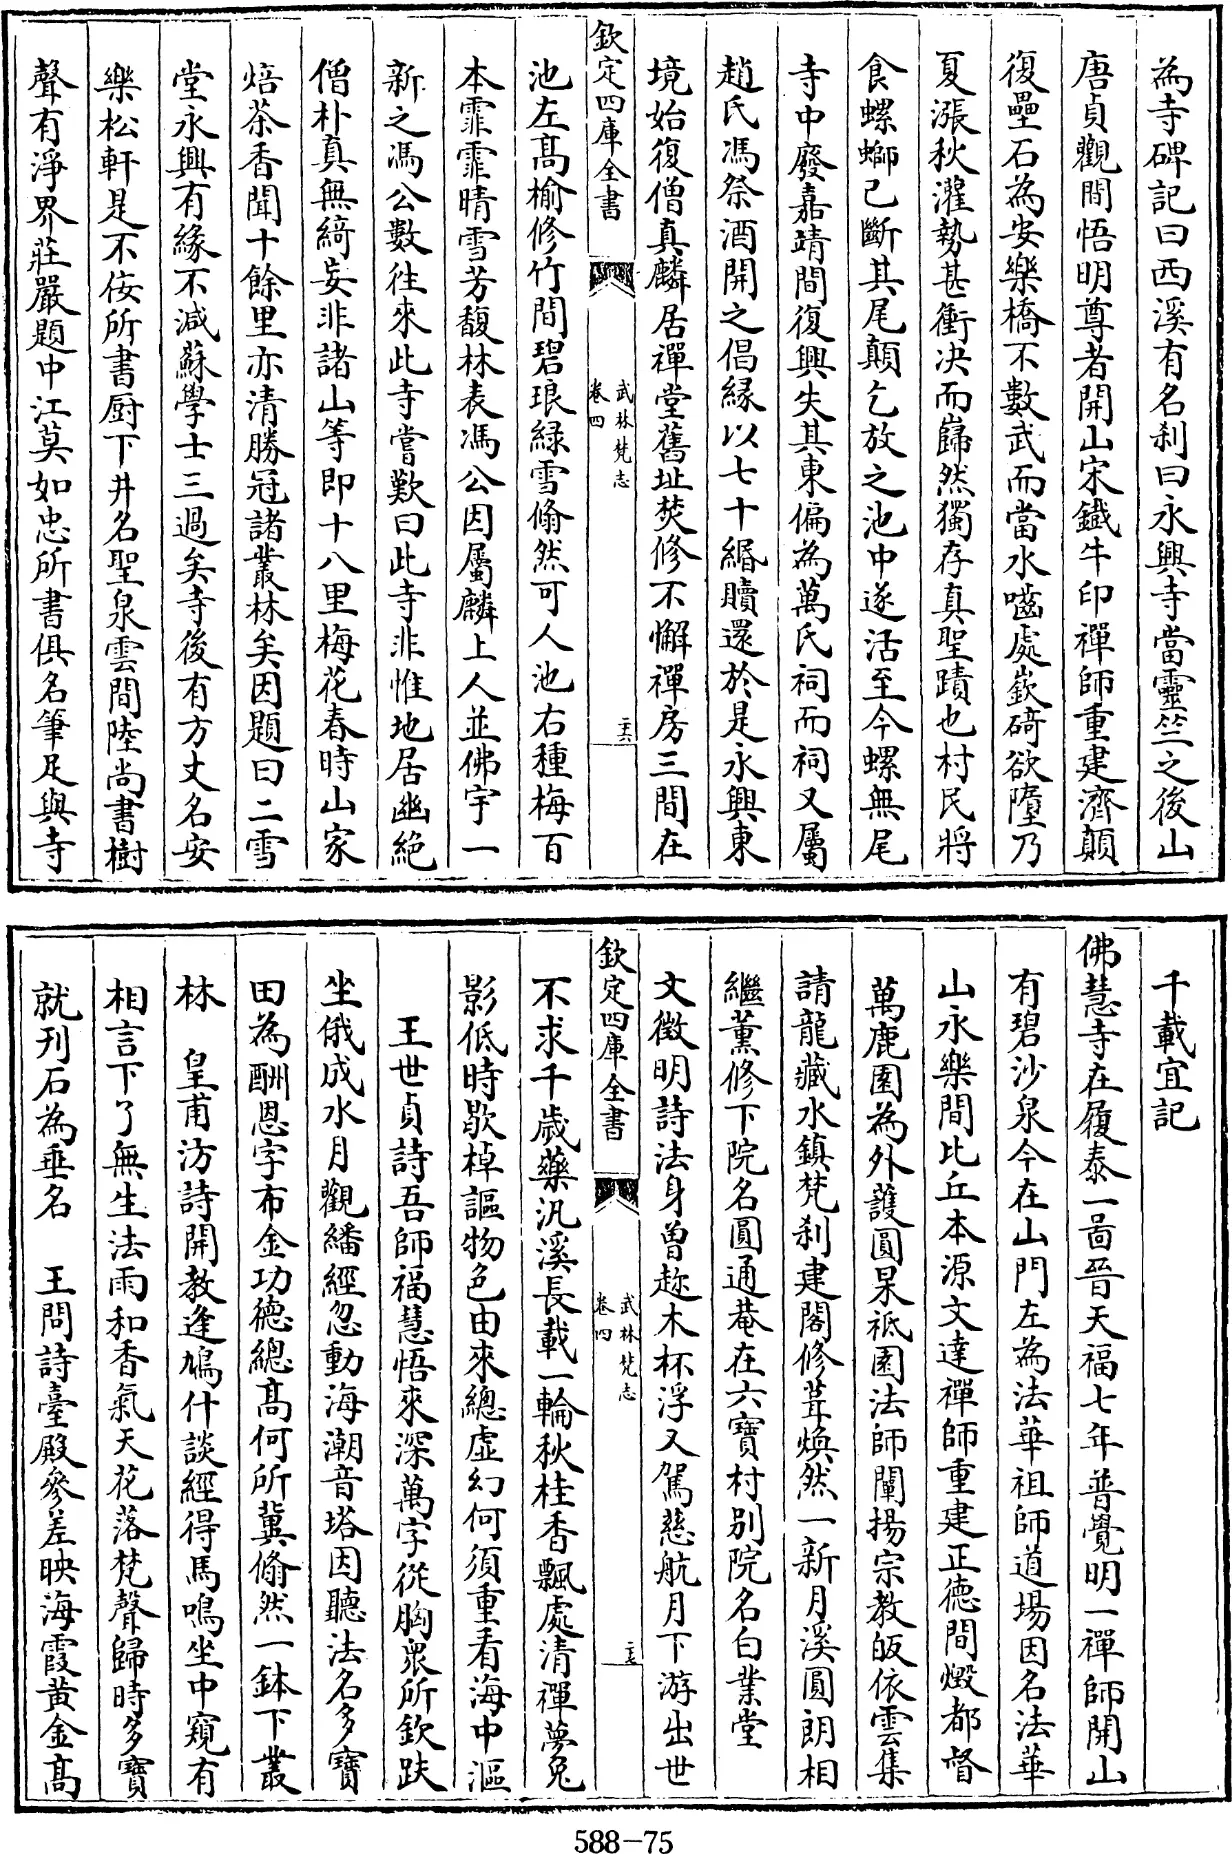 為寺碑記曰西溪有名刹曰永興寺當靈竺之後山
唐貞觀間悟明尊者開山宋鐵牛印禪師重建濟顛
復壘石為安樂橋不數武而當水嚙處嶔碕欲墮乃
夏漲秋漼勢甚衝决而巋然獨存真聖蹟也村民將
食螺螄已斷其尾顛乞放之池中遂活至今螺無尾
寺中廢嘉靖間復興失其東偏為萬氏祠而祠又屬
趙氏馮祭酒開之倡緣以七十緡贖還於是永興東
境始復僧真麟居禪堂舊址焚修不懈禪房三間在
欽定四庫全書
武林梵志
卷四
二十六
池左高榆修竹間碧琅綠雪翛然可人池右種梅百
本霏霏晴雪芳馥林表馮公因屬麟上人並佛宇一
新之馮公數往來此寺嘗歎曰此寺非惟地居幽絕
僧朴真無綺妄非諸山等即十八里梅花春時山家
焙茶香聞十餘里亦清勝冠諸叢林矣因題曰二雪
堂永興有緣不減蘇學士三過矣寺後有方丈名安
樂松軒是不佞所書厨下井名聖泉雲間陸尚書樹
聲有淨界莊嚴題中江莫如忠所書俱名筆足與寺
千載宜記
佛慧寺在履泰一啚晉天福七年普覺明一禪師開山
有碧沙泉今在山門左為法華祖師道場因名法華
山永樂間比丘本源文達禪師重建正德間燬都督
萬鹿園為外護圓杲祗園法師闡揚宗教皈依雲集
請龍藏水鎮梵刹建閣修葺煥然一新月溪圓朗相
繼薰修下院名圓通菴在六寶村別院名白業堂
文徵明詩法身曾趂木杯浮又駕慈航月下游出世
欽定四庫全書
武林梵志
卷四
二十七
不求千歲藥汎溪長載一輪秋桂香飄處清禪夢兔
影低時歇棹謳物色由來總虛幻何須重看海中漚
王世貞詩吾師福慧悟來深萬字從胸衆所欽趺
坐俄成水月觀繙經忽動海潮音塔因聽法名多寶
田為酬恩字布金功德總高何所冀翛然一鉢下叢
林　皇甫汸詩開教逢鳩什談經得馬鳴坐中窺有
相言下了無生法雨和香氣天花落梵聲歸時多寶
就刊石為垂名　王問詩臺殿參差映海霞黃金高
588-75